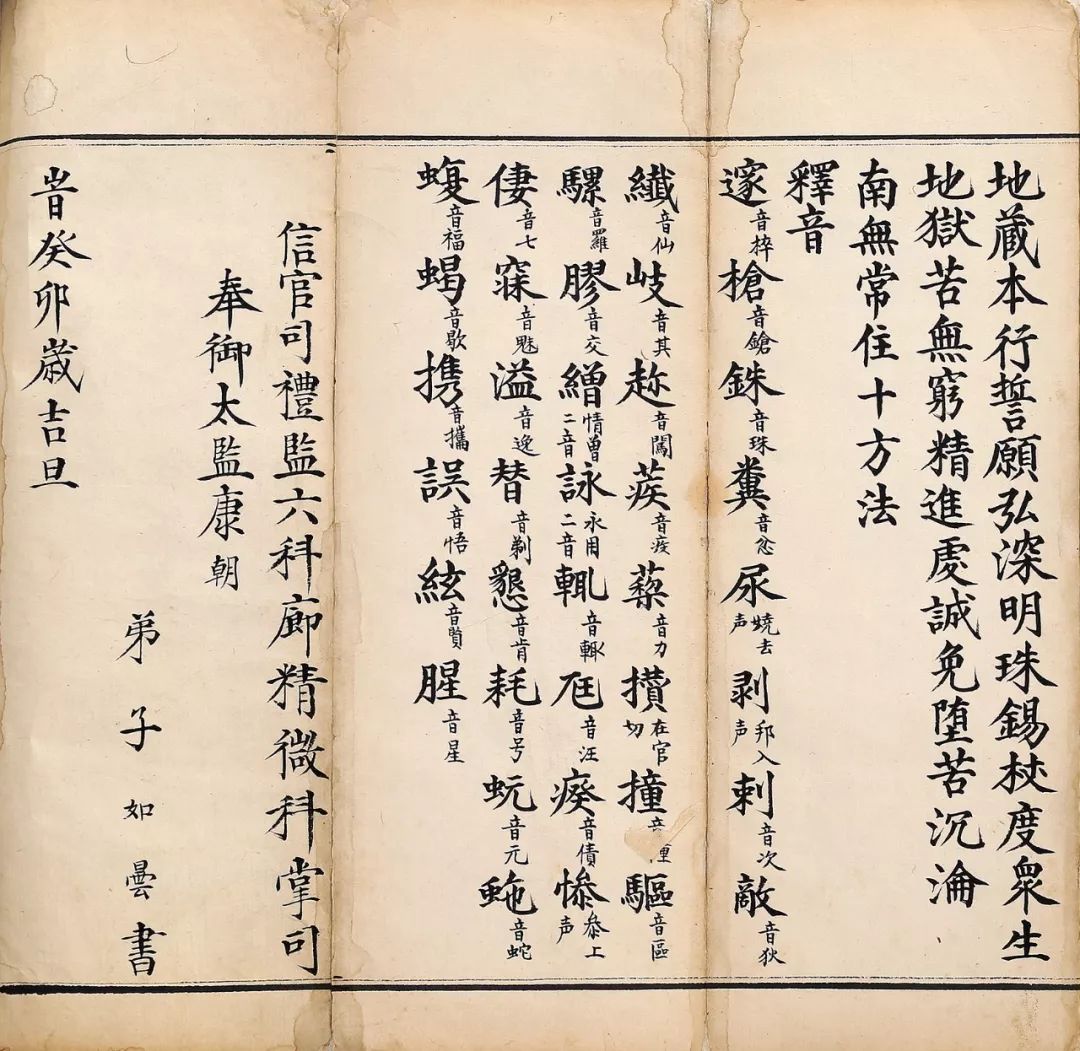 地藏本行誓願弘深明珠錫杖度衆生
地獄苦無窮精進虔誠免墮苦沉淪
南無常住十方法
釋音
邃音粹槍音鎗銖音珠糞音忿尿燒去声剥邦入声刺音次敵音狄
纖音仙岐音其趂音闖蒺音疾䔧音力攢在官切撞驅音區
騾音羅膠音交繒情曾二音詠永用二音輒音輙尫音汪瘊音債慘叅上声
倢音七寐音魅溢音逸替音剃懇音肯耗音号蚖音元虵音蛇
蝮音福蝎音歇携音攜誤音悟絃音賢腥音星
信官司禮監六科廊精微科掌司
奉御太監康朝
弟子如曇書
旹癸卯歲吉旦